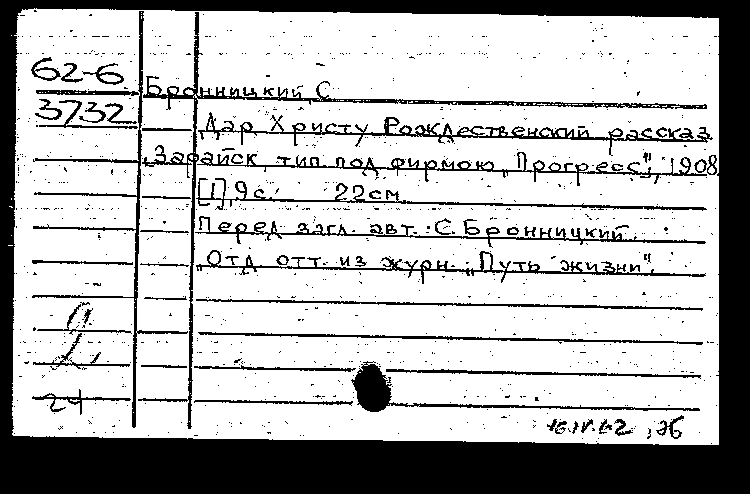 62-6
3732
Бронницкий, С
Дар Христу Рождественский рассказ.
Зарайск, тип. под фирмою „Прогресс“, 1908
[1], 9 с. 22 см
Перед загл. авт.: С. Бронницкий.
Отд. отт. из журн. „Путь жизни“.
24